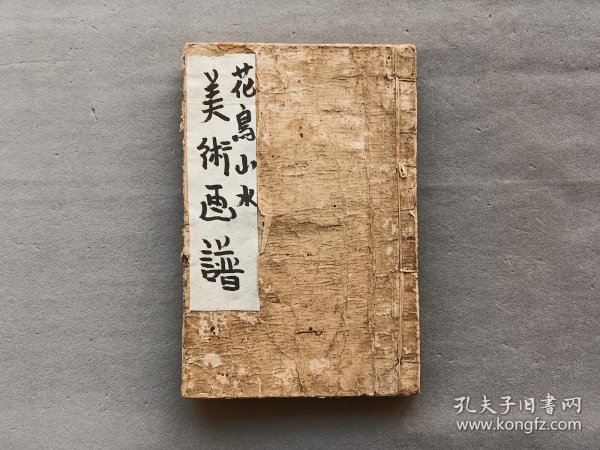 花鳥山水
美術画譜
孔夫子旧書网
www.kongfz.com